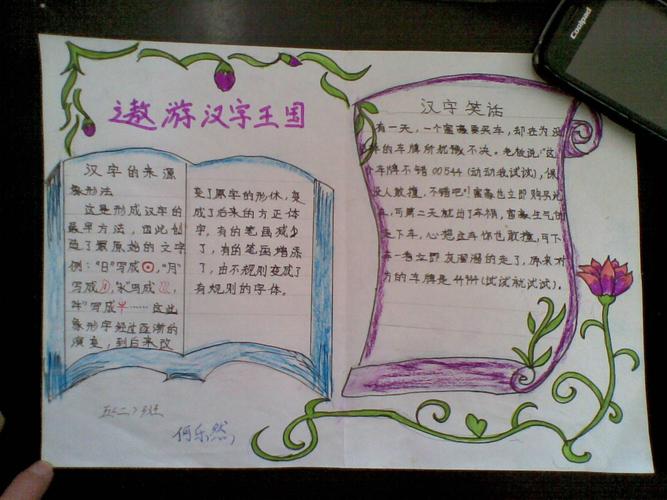 遨游汉字王国
汉字的来源
象形法
这是形成汉字的
最早方法,由此创
造了最原始的文字
例:"日"写成,"月"
写成,"水"写成,
"牛"写成……这些
象形字经过逐渐的
演变,到后来改
变了原字的形体,变
成了后来的方正体
字,有的笔画减少
了,有的笔画增添
了,由不规则变成了
有规则的字体。
汉字笑话
有一天,一个富豪要买车,却在为没
的车牌所犹豫不决。老板说:"这
个车牌不错00544(动动我试试),保
没人敢撞,不错吧!富豪也立即购买
车,可第二天就出了车祸,富豪生气的
走下车,心想这车你也敢撞,可下
车一看立即灰溜溜的走了,原来对
方的车牌是44944(试试就试试)。
五(二)班
何乐然
Coolpad